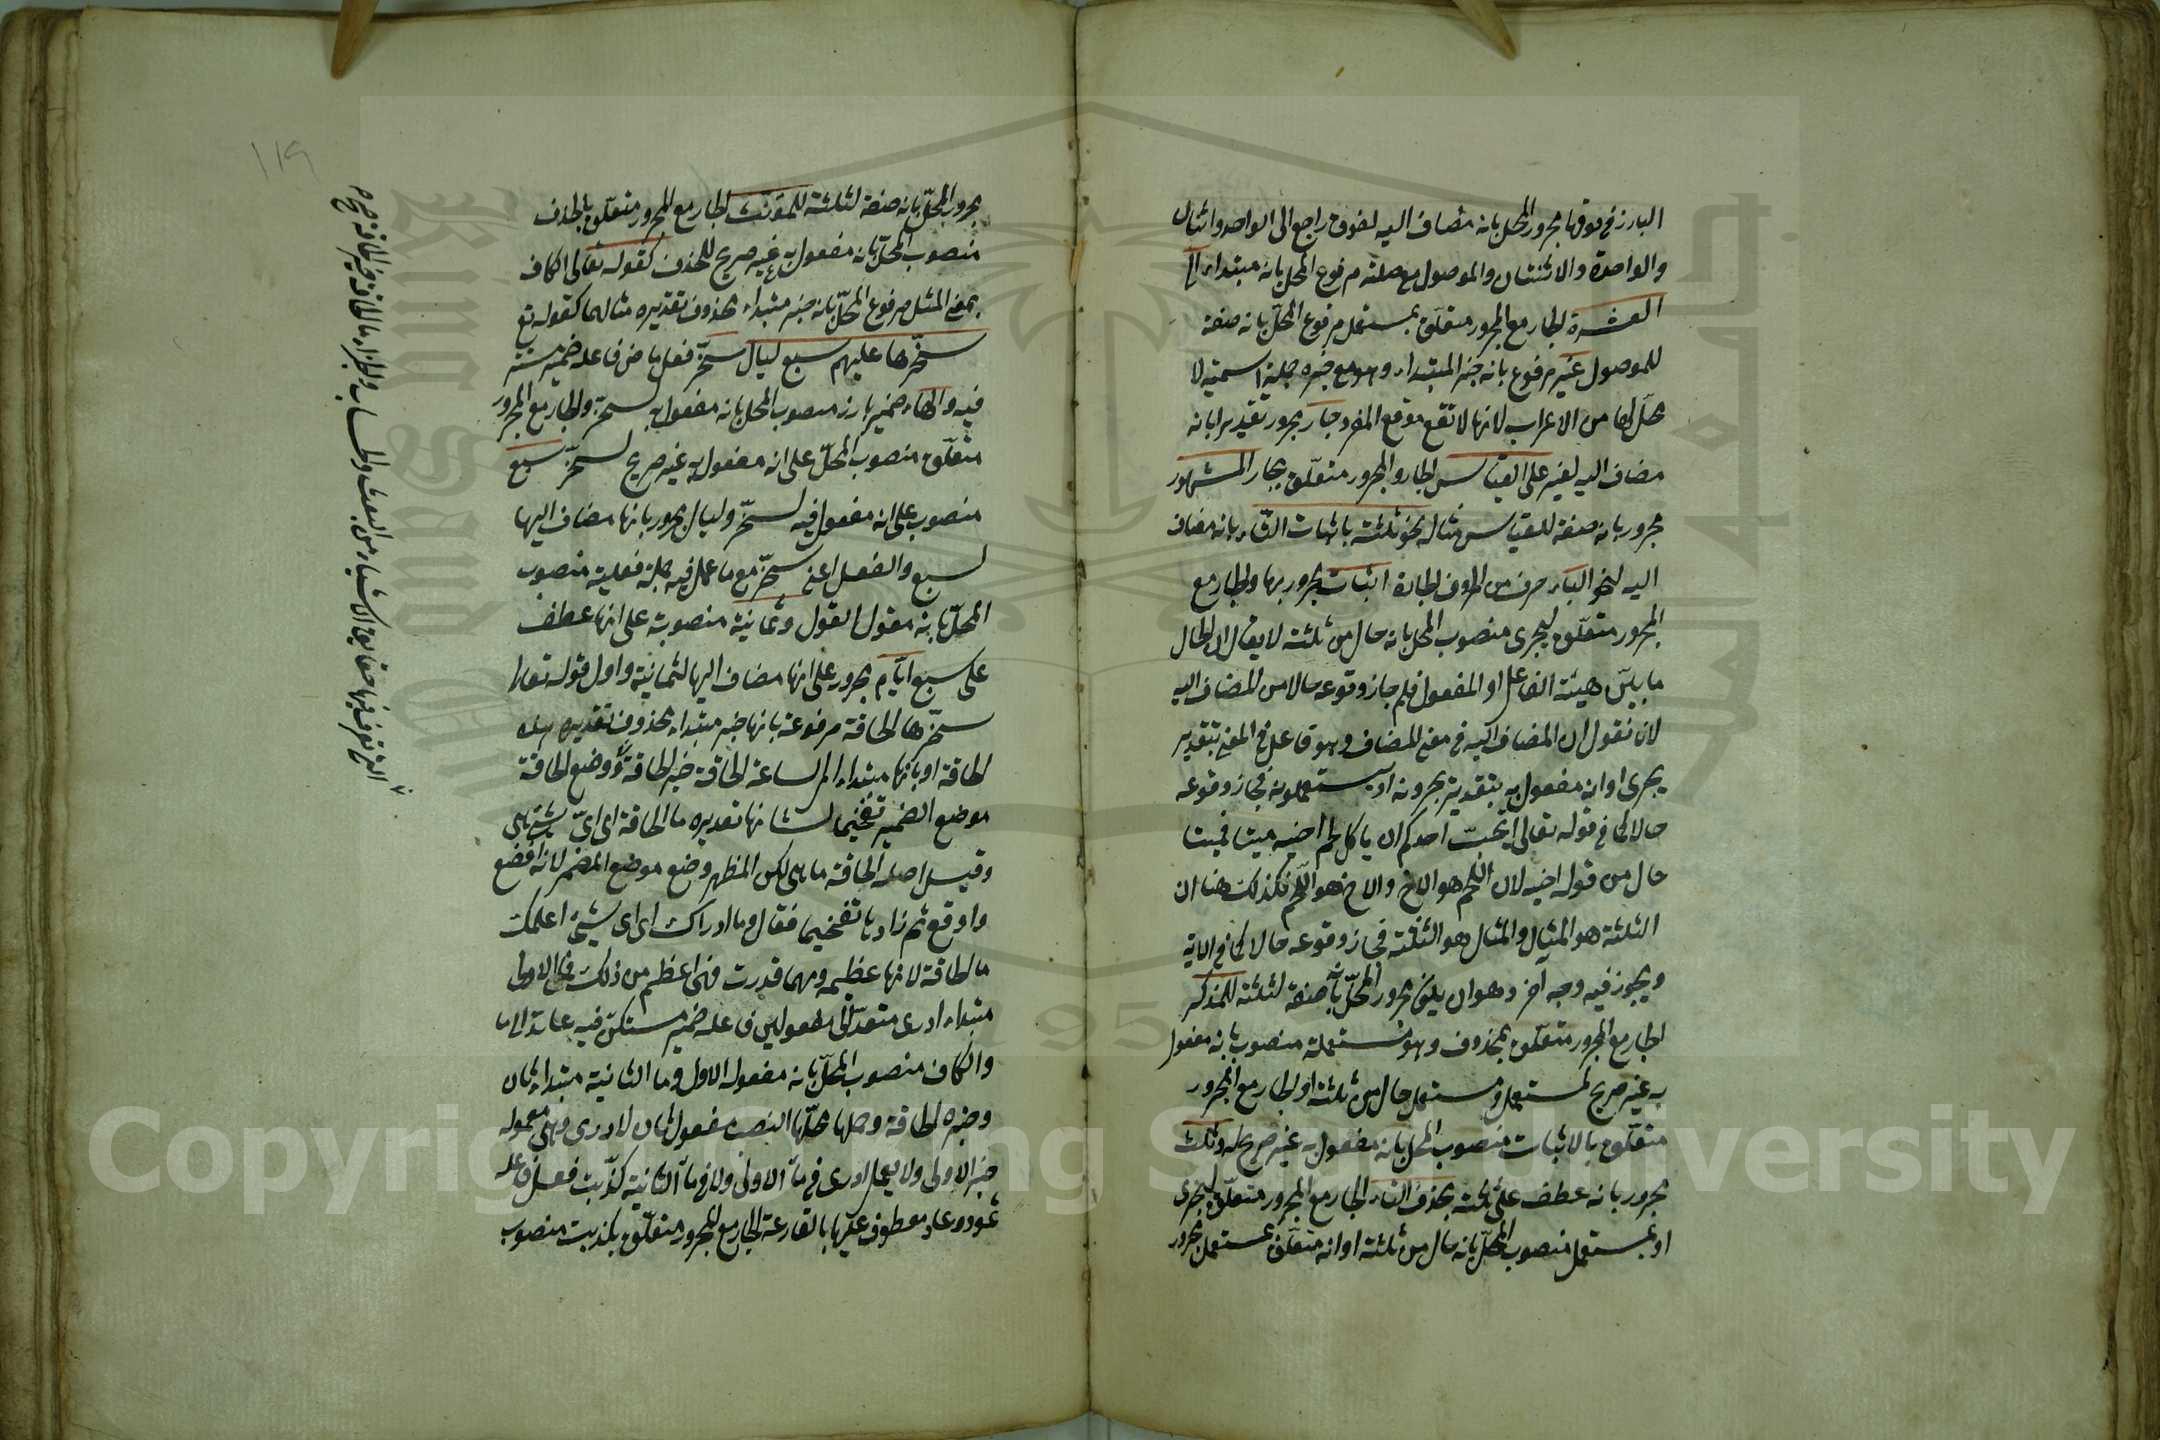 البارز في فوقها مجرور المحل بانه مضاف اليه لفوق راجع الى الواحد واثنان
والواحدة والاثنتان والموصول مع صلته مرفوع المحل بانه مبتداء الى
العشرة الجار مع المجرور متعلق بمستعمل مرفوع المحل بانه صفة
للموصول غير مرفوع بانه خبر المبتداء وهو مع خبره جملة اسمية لا
محل لها من الاعراب لانها لا تقع موقع المفرد جار مجرور تقديرا بانه
مضاف اليه لغير على القياس الجار والمجرور متعلق بجار المشهور
مجرور بانه صفة للقياس مثاله نحو ثلثة باثبات التاء بانه مضاف
اليه لنحو الباء حرف من الحروف الجارة اثبات مجرور بها والجار مع
المجرور متعلق ليجرى منصوب المحل بانه حال من ثلثة لا يقال ان الحال
ما يبين هيئة الفاعل او المفعول فلم جاز وقوعه حالا من المضاف اليه
لانا نقول ان المضاف اليه في معنى المضاف وهو فاعل في المعنى بتقدير
يجرى او انه مفعول به بتقدير يجرونه او يستعملونه فجاز وقوعه
حالا كما في قوله تعالى ايحب احدكم ان ياكل لحم اخيه ميتا فميتا
حال من قوله اخيه لان اللحم هو الاخ والاخ هو اللحم فكذلك هنا ان
الثلثة هو المثال والمثال هو الثلثة فجاز وقوعه حالا كما في الاية
ويجوز فيه وجه اخر وهو ان يكون مجرور المحل بانه صفة لثلثة للمذكر
الجار مع المجرور متعلق بمحذوف وهو مستعملة منصوب بانه مفعول
به غير صريح لمستعمل ومستعمل حال من ثلثة او الجار مع المجرور
متعلق بالاثبات منصوب المحل بانه مفعول به غير صريح له وثلث
مجرور بانه عطف على ثلثة بحذف التاء الجار مع المجرور متعلق ليجرى
او بمستعمل منصوب المحل بانه حال من ثلثة او انه متعلق بمستعمل مجرور
١١٩
مجرور المحل بانه صفة لثلثة للمؤنث الجار مع المجرور متعلق بالحذف
منصوب المحل بانه مفعول به غير صريح للحذف كقوله تعالى الكاف
بمعنى المثل مرفوع المحل بانه خبر مبتداء محذوف تقديره مثالهما كقوله تع
سخرها عليهم سبع ليال سخر فعل ماض فاعله ضمير مستتر
فيه والهاء ضمير بارز منصوب المحل بانه مفعول به لسخر والجار مع المجرور
متعلق منصوب المحل على انه مفعول به غير صريح لسخر سبع
منصوب على انه مفعول فيه لسخر وليال مجرور بانها مضاف اليها
لسبع والفعل اعنى سخر مع ما عمل فيه جملة فعلية منصوب
المحل بانه مقول القول وثمانية منصوبة على انها عطف
على سبع ايام مجرور على انها مضاف اليها لثمانية واول قوله تعالى
سخرها الحاقة مرفوعة بانها خبر مبتداء محذوف تقديره هذه
الحاقة او بانها مبتداء الحاقة خبر الحاقة ووضع الحاقة
موضع الضمير تفخيما لشانها تقديره ما الحاقة اى اى شئ هى
وقيل اصله الحاقة ما هى لكن المظهر وضع موضع المضمر لانه افضع
واوقع ثم زاد بها تفخيما فقال وما ادراك اى اى شئ اعلمك
ما الحاقة لانها عظيمه ومهما قدرت فهى اعظم من ذلك فما الاولى
مبتداء ادرى متعد الى مفعولين فاعله ضمير مستكن فيه عائد الى ما
والكاف منصوب المحل بانه مفعوله الاول وما الثانية مبتداء ثان
وخبره الحاقة وجملها محلها النصب مفعول ثان لادرى وهى معموله
خبر الاولى ولا يعمل ادرى في ما الاولى ولا في ما الثانية كذبت فعل فاعله
ثمود وعاد معطوف عليها بالقارعة الجار مع المجرور متعلق بكذبت منصوب